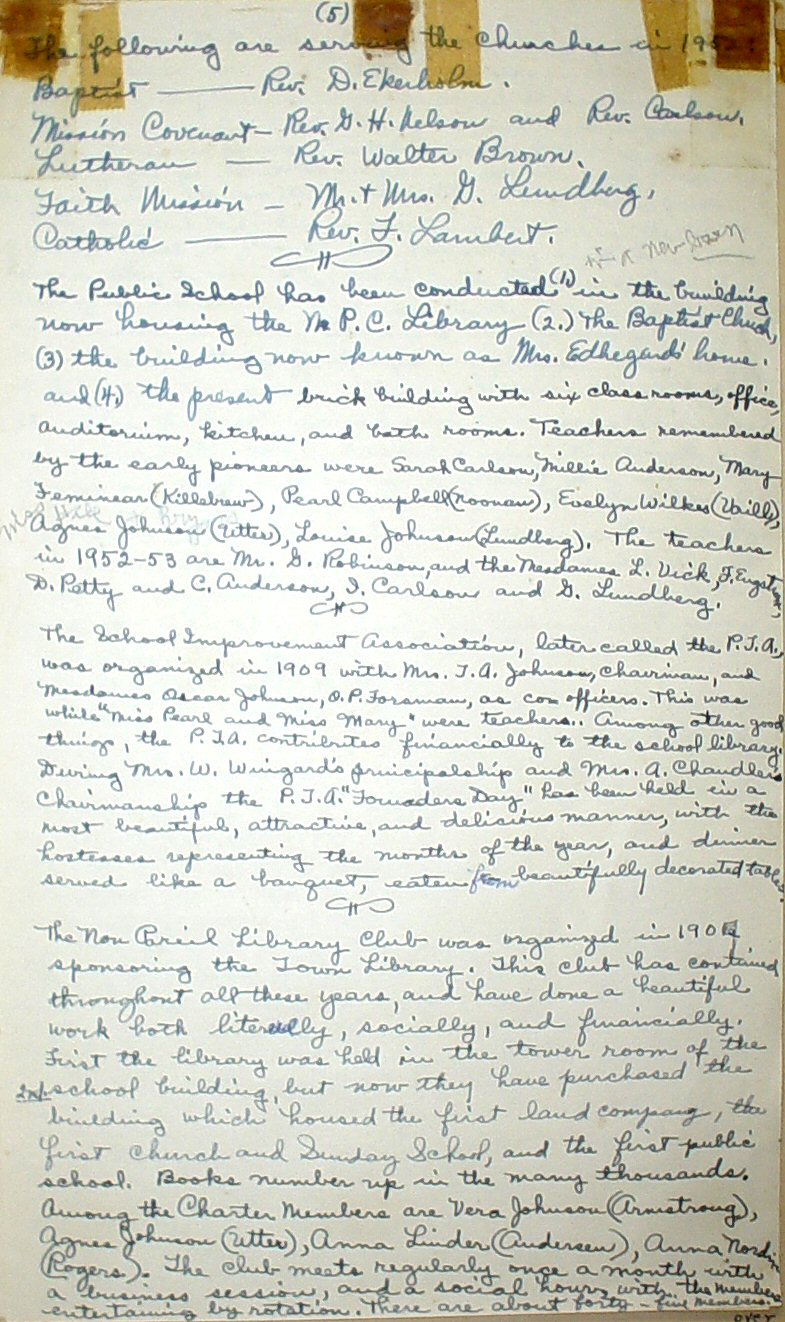 (5)
The following are serving the churches in 1952:
Baptist — Rev. D. Ekerholm.
Mission Covenant — Rev. G. H. Nelson and Rev. Carlson.
Lutheran — Rev. Walter Brown.
Faith Mission — Mr. + Mrs. G. Lundberg.
Catholic — Rev. F. Lambert.
now
The Public School has been conducted (1.) in the building
now housing the N. P. C. Library (2.) The Baptist Church,
(3) the building now known as Mrs. Edhegard's home.
and (4.) the present brick building with six class rooms, office,
auditorium, kitchen, and bath rooms. Teachers remembered
by the early pioneers were Sarah Carlson, Millie Anderson, Mary
Feminear (Killebrew), Pearl Campbell (Noonan), Evelyn Wilkes (Vaill),
Miss
Agnes Johnson (Utter), Louise Johnson (Lundberg). The teachers
in 1952-53 are Mr. G. Robinson, and the Mesdames L. Vick, F. Engstrom,
D. Petty and C. Anderson, I. Carlson and G. Lundberg.
The School Improvement Association, later called the P.T.A.,
was organized in 1909 with Mrs. T. A. Johnson, Chairman, and
Mesdames Oscar Johnson, O. P. Forsman, as co officers. This was
while "Miss Pearl and Miss Mary" were teachers.. Among other good
things, the P.T.A. contributes financially to the school library.
During Mrs. W. Wingard's principalship and Mrs. A. Chandler's
Chairmanship the P.T.A. "Founders Day" has been held in a
most beautiful, attractive, and delicious manner, with the
hostesses representing the months of the year, and dinner
served like a banquet, eaten from beautifully decorated tables.
The Non Pareil Library Club was organized in 190
sponsoring the Town Library. This club has contained
throughout all these years, and have done a beautiful
work both literally, socially, and financially.
First the library was held in the tower room of the
school building, but now they have purchased the
building which housed the first land company, the
first church and Sunday School, and the first public
school. Books number up in the many thousands.
Among the Charter Members are Vera Johnson (Armstrong),
Agnes Johnson (Utter), Anna Linder (Andersen), Anna Nordin
(Rogers). The club meets regularly once a month with
a business session, and a social hour, with the members
entertaining by rotation. There are about forty-five members.
over